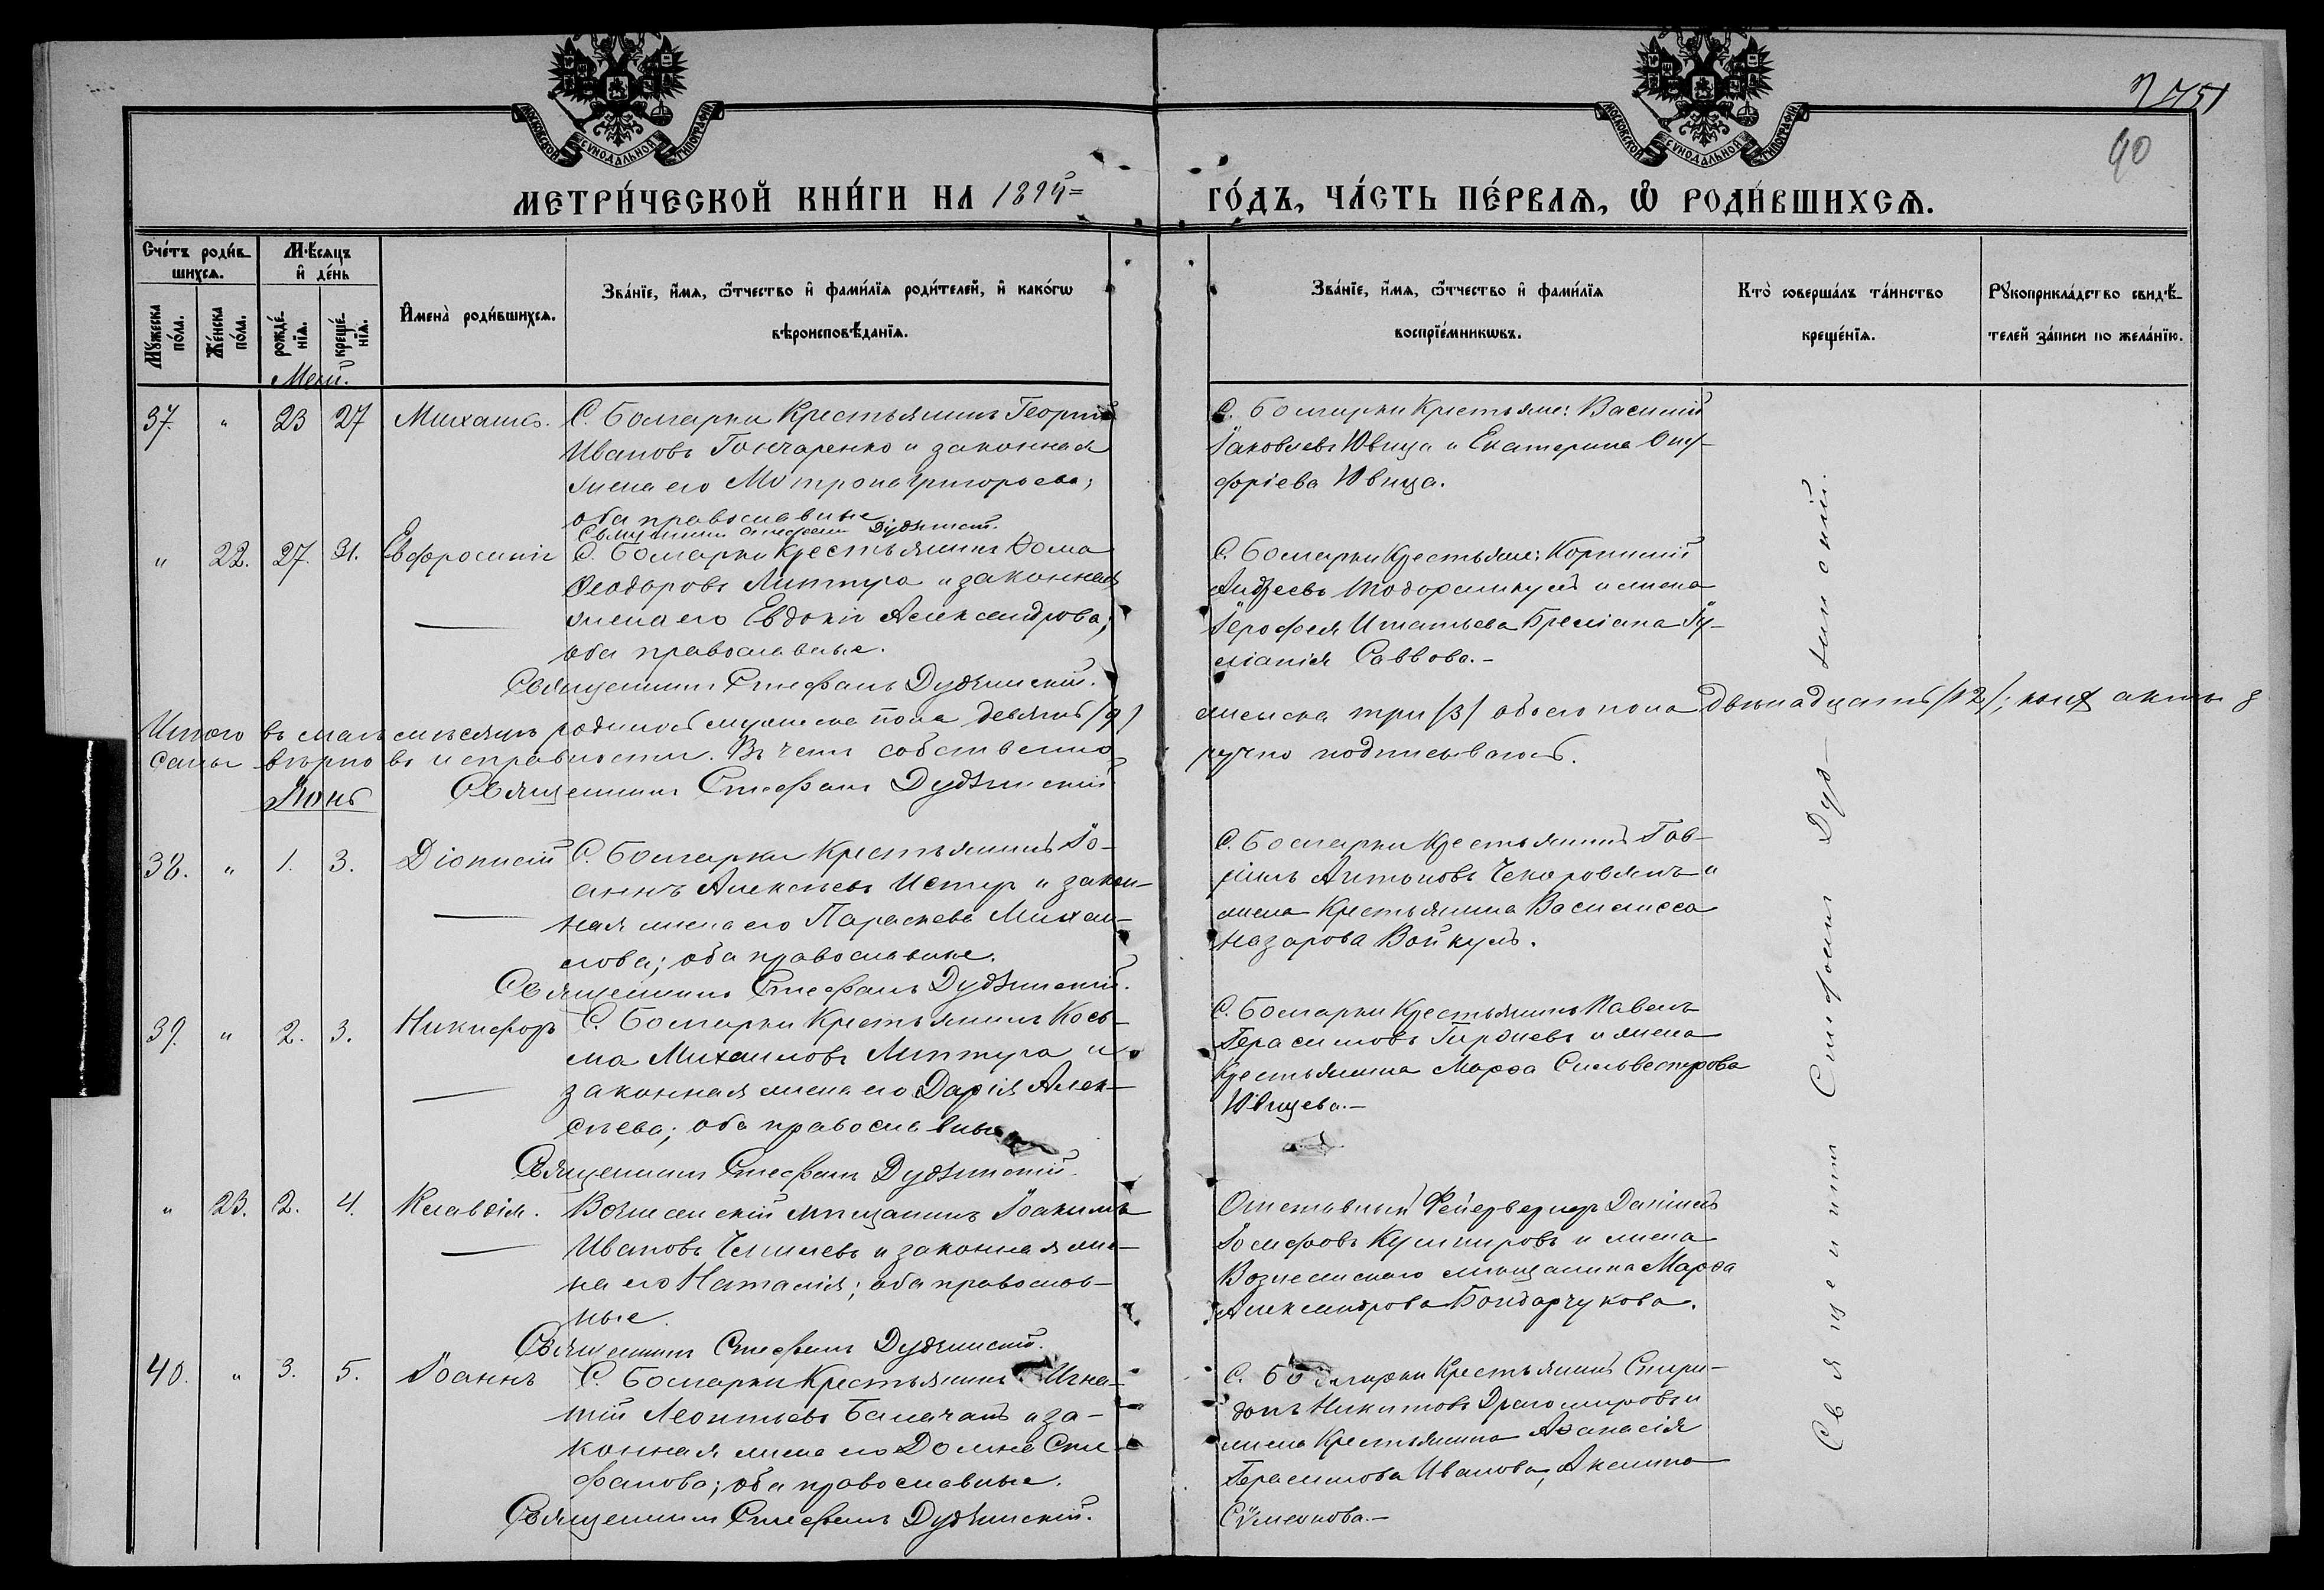 МОСКОВСКОЙ СУНОДАЛЬНОЙ ТИПОГРАФІИ
МОСКОВСКОЙ СУНОДАЛЬНОЙ ТИПОГРАФІИ
90
МЕТРИ́ЧЕСКОЙ КНИ́ГИ НА 1894й
ГО́ДЪ, ЧА́СТЬ ПЕ́РВАѦ, Ѡ҆ РОДИ́ВШИХСѦ.
Сче́тъ роди́вшихсѧ.
Мꙋ́жеска по́ла.
Же́нска по́ла.
Мѣ́сѧцъ и҆ де́нь
рожде́нїѧ.
креще́нїѧ.
И҆мена̀ роди́вшихсѧ.
Зва́нїе, и҆́мѧ, ѻ҆́тчество и҆ фами́лїѧ роди́телей, и҆ како́гѡ
вѣроисповѣ́данїѧ.
Зва́нїе, и҆́мѧ, ѻ҆́тчество и҆ фами́лїѧ
воспрїе́мникѡвъ.
Кто̀ соверша́лъ та́инство
креще́нїѧ.
Рꙋкоприкла́дство свидѣ́-
телей за́писи по жела́нїю.
Май.
37. " 23 27 Михаилъ. С. Болгарки Крестьянинъ Георгій
Ивановъ Гончаренко и законная
жена его Матрона Григорьева;
оба православные
Священникъ Стефанъ Дудзинскій.
С. Болгарки Крестьяне: Василій
Іаковлевъ Ювица и Екатерина Ону-
фріева Ювица.
" 22. 27. 31. Евфросинія С. Болгарки Крестьянинъ Ѳома
Ѳеодоровъ Липтуга и законная
жена его Евдокія Александрова;
оба православные.
Священникъ Стефанъ Дудзинскій.
С. Болгарки Крестьяне: Корнилій
Андреевъ и жена
Іероѳея Игнатьева Іу-
ліанія Саввова.-
Итого въ маѣ мѣсяцѣ родилось мужеска пола девять /9/ женска три /3/ обоего пола двѣнадцать /12/;
вѣрно въ исправности. Въ чемъ собственно-
ручно подписываюсь.
Священникъ Стефанъ Дудзинскій
Іюнь
38. " 1. 3. Діонисій С. Болгарки Крестьянинъ Іо-
аннъ Алексѣевъ и закон-
ная жена его Параскева Михаи-
лова; оба православные.
Священникъ Стефанъ Дудзинскій.
С. Болгарки Крестьянинъ Гав-
ріилъ Антоновъ и
жена Крестьянина Василисса
Назарова Войкулъ.
39. " 2. 3. Никифоръ С. Болгарки Крестьянинъ Кось-
ма Михаиловъ Липтуга и
законная жена его Дарія Алек-
сѣева; оба православные
Священникъ Стефанъ Дудзинскій.
С. Болгарки Крестьянинъ Павелъ
Герасимовъ и жена
Крестьянина Марѳа Сильвестрова
Ювицева.-
" 23. 2. 4. Клавдія. Вознесенскій мѣщанинъ Іоакимъ
Ивановъ и законная же-
на его Наталія; оба православ-
ные.
Священникъ Стефанъ Дудзинскій.
Отставный Фейерверкеръ Даніилъ
Іосифовъ Кушнировъ и жена
Вознесенского мѣщанина Марѳа
Александрова Бондарчукова.
40. " 3. 5. Іоаннъ С. Болгарки Крестьянинъ Игна-
тій Леонтьевъ и за-
конная жена его Домна Сте-
фанова; оба православные.
Священникъ Стефанъ Дудзинскій.
С. Болгарки Крестьянинъ Спири-
донъ Никитовъ Драгомировъ и
жена Крестьянина Аѳанасія
Герасимова Иванова,
Сѵмеонова.-
Священникъ Стефанъ Дуд-зинскій.